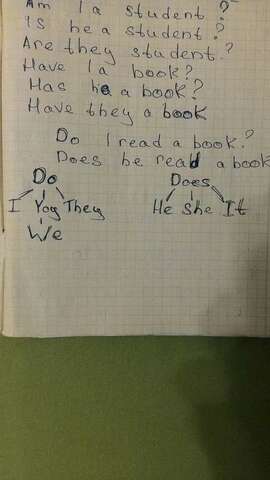 Am I a student?
Is he a student?
Are they student?
Have I a book?
Has he a book?
Have they a book
Do I read a book?
Does he read a book
Do Does
I You They He She It
We